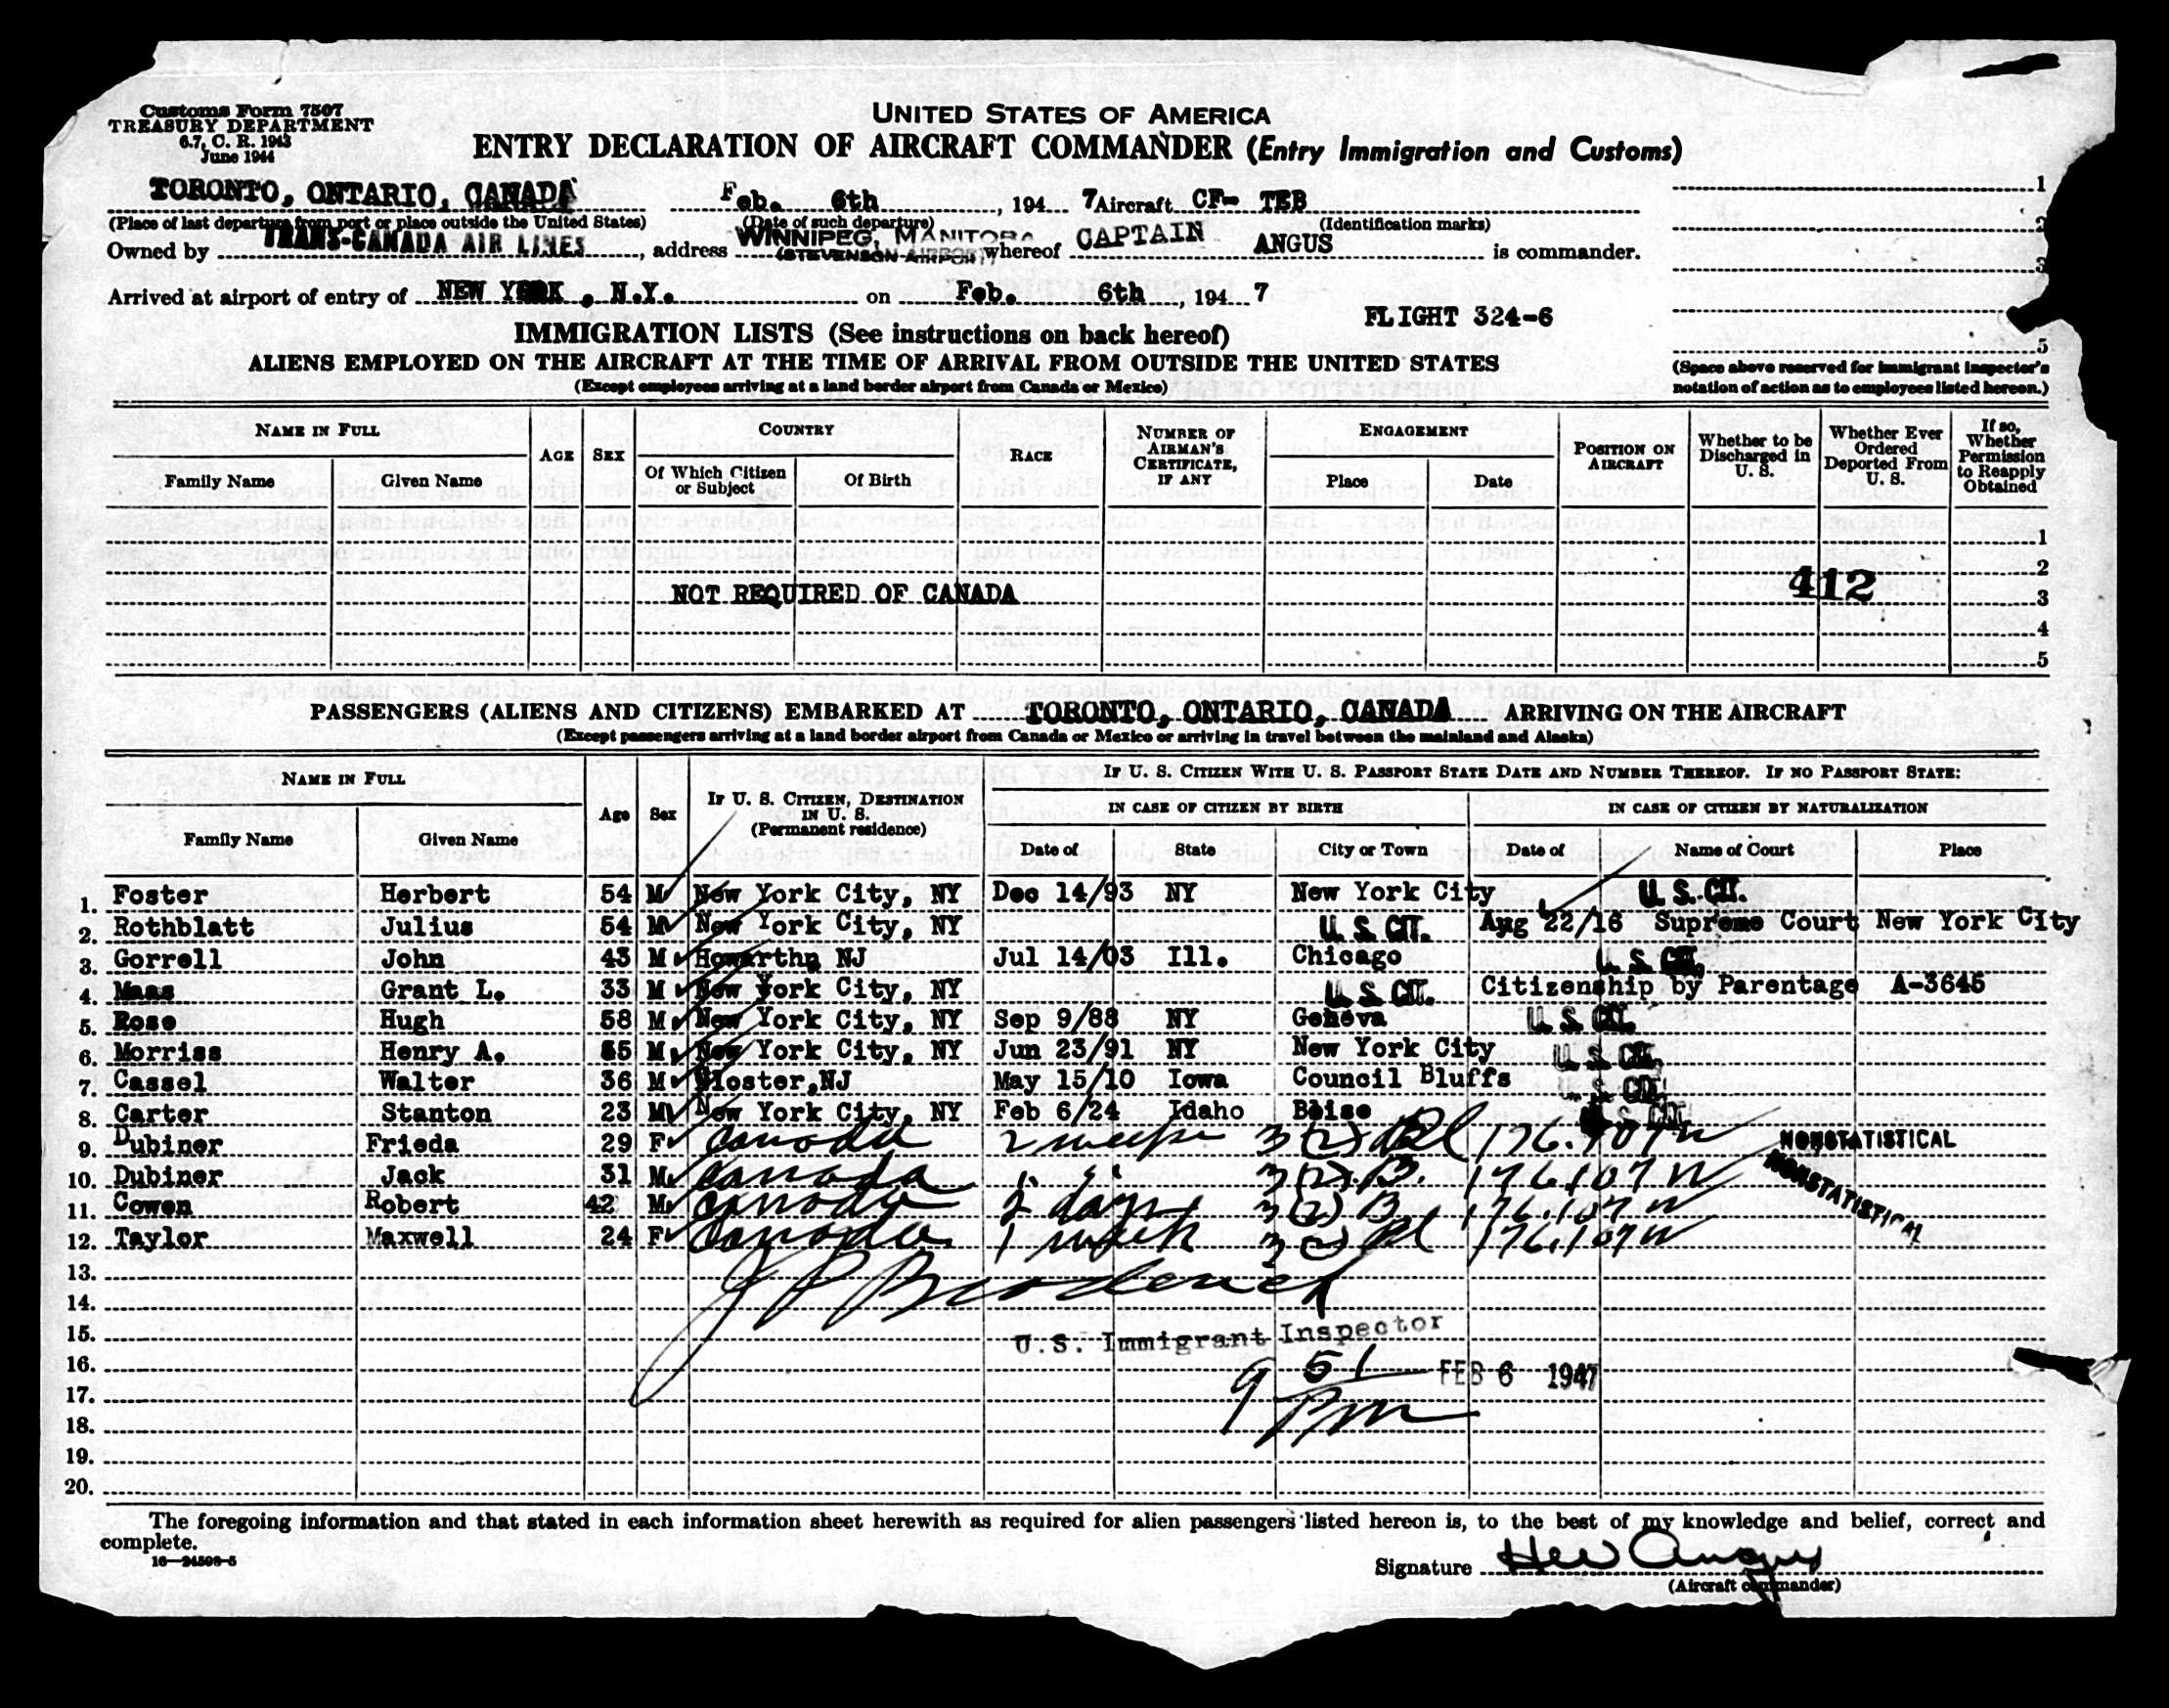 Customs Form 7507
TREASURY DEPARTMENT
6.7, C. R. 1943
June 1944
UNITED STATES OF AMERICA
ENTRY DECLARATION OF AIRCRAFT COMMANDER (Entry Immigration and Customs)
TORONTO, ONTARIO, CANADA Feb. 6th, 194 7 Aircraft CF- TEB
(Place of last departure from port or place outside the United States) (Date of such departure) (Identification marks)
Owned by TRANS-CANADA AIR LINES, address WINNIPEG, MANITOBA (STEVENSON AIRPORT) whereof CAPTAIN ANGUS is commander.
Arrived at airport of entry of NEW YORK, N.Y. on Feb. 6th, 194 7
FLIGHT 324-6
1
2
3
5
(Space above reserved for immigrant inspector's notation of action as to employees listed hereon.)
IMMIGRATION LISTS (See instructions on back hereof)
ALIENS EMPLOYED ON THE AIRCRAFT AT THE TIME OF ARRIVAL FROM OUTSIDE THE UNITED STATES
(Except employees arriving at a land border airport from Canada or Mexico)
NAME IN FULL AGE SEX COUNTRY RACE NUMBER OF AIRMAN'S CERTIFICATE, IF ANY ENGAGEMENT POSITION ON AIRCRAFT Whether to be Discharged in U. S. Whether Ever Ordered Deported From U. S. If so, Whether Permission to Reapply Obtained
Family Name Given Name Of Which Citizen or Subject Of Birth Place Date
1
2
NOT REQUIRED OF CANADA 412 3
4
5
PASSENGERS (ALIENS AND CITIZENS) EMBARKED AT TORONTO, ONTARIO, CANADA ARRIVING ON THE AIRCRAFT
(Except passengers arriving at a land border airport from Canada or Mexico or arriving in travel between the mainland and Alaska)
NAME IN FULL Age Sex IF U. S. CITIZEN, DESTINATION IN U. S. (Permanent residence) IF U. S. CITIZEN WITH U. S. PASSPORT STATE DATE AND NUMBER THEREOF. IF NO PASSPORT STATE:
IN CASE OF CITIZEN BY BIRTH IN CASE OF CITIZEN BY NATURALIZATION
Family Name Given Name Date of State City or Town Date of Name of Court Place
1. Foster Herbert 54 M New York City, NY Dec 14/93 NY New York City U. S. CIT.
2. Rothblatt Julius 54 M New York City, NY U. S. CIT. Aug 22/16 Supreme Court New York City
3. Gorrell John 43 M Howarthn NJ Jul 14/03 Ill. Chicago U. S. CIT.
4. Maas Grant L. 33 M New York City, NY U. S. CIT. Citizenship by Parentage A-3645
5. Rose Hugh 58 M New York City, NY Sep 9/88 NY Geneva U. S. CIT.
6. Morriss Henry A. 55 M New York City, NY Jun 23/91 NY New York City U. S. CIT.
7. Cassel Walter 36 M Closter, NJ May 15/10 Iowa Council Bluffs U. S. CIT.
8. Carter Stanton 23 M New York City, NY Feb 6/24 Idaho Boise U. S. CIT.
9. Dubiner Frieda 29 F Canada 2 weeks 3(2) 176.107W NONSTATISTICAL
10. Dubiner Jack 31 M Canada 3(2) B. 176.107W NONSTATISTICAL
11. Cowen Robert 42 M Canada 2 days 3(2) B 176.107W
12. Taylor Maxwell 24 F Canada 1 week 3(2) 176.107W
13.
14.
15. U.S. Immigrant Inspector
16. 9 51 FEB 6 1947
17. Pm
18.
19.
20.
The foregoing information and that stated in each information sheet herewith as required for alien passengers listed hereon is, to the best of my knowledge and belief, correct and
complete.
16—24598-5
Signature HW Angus
(Aircraft commander)